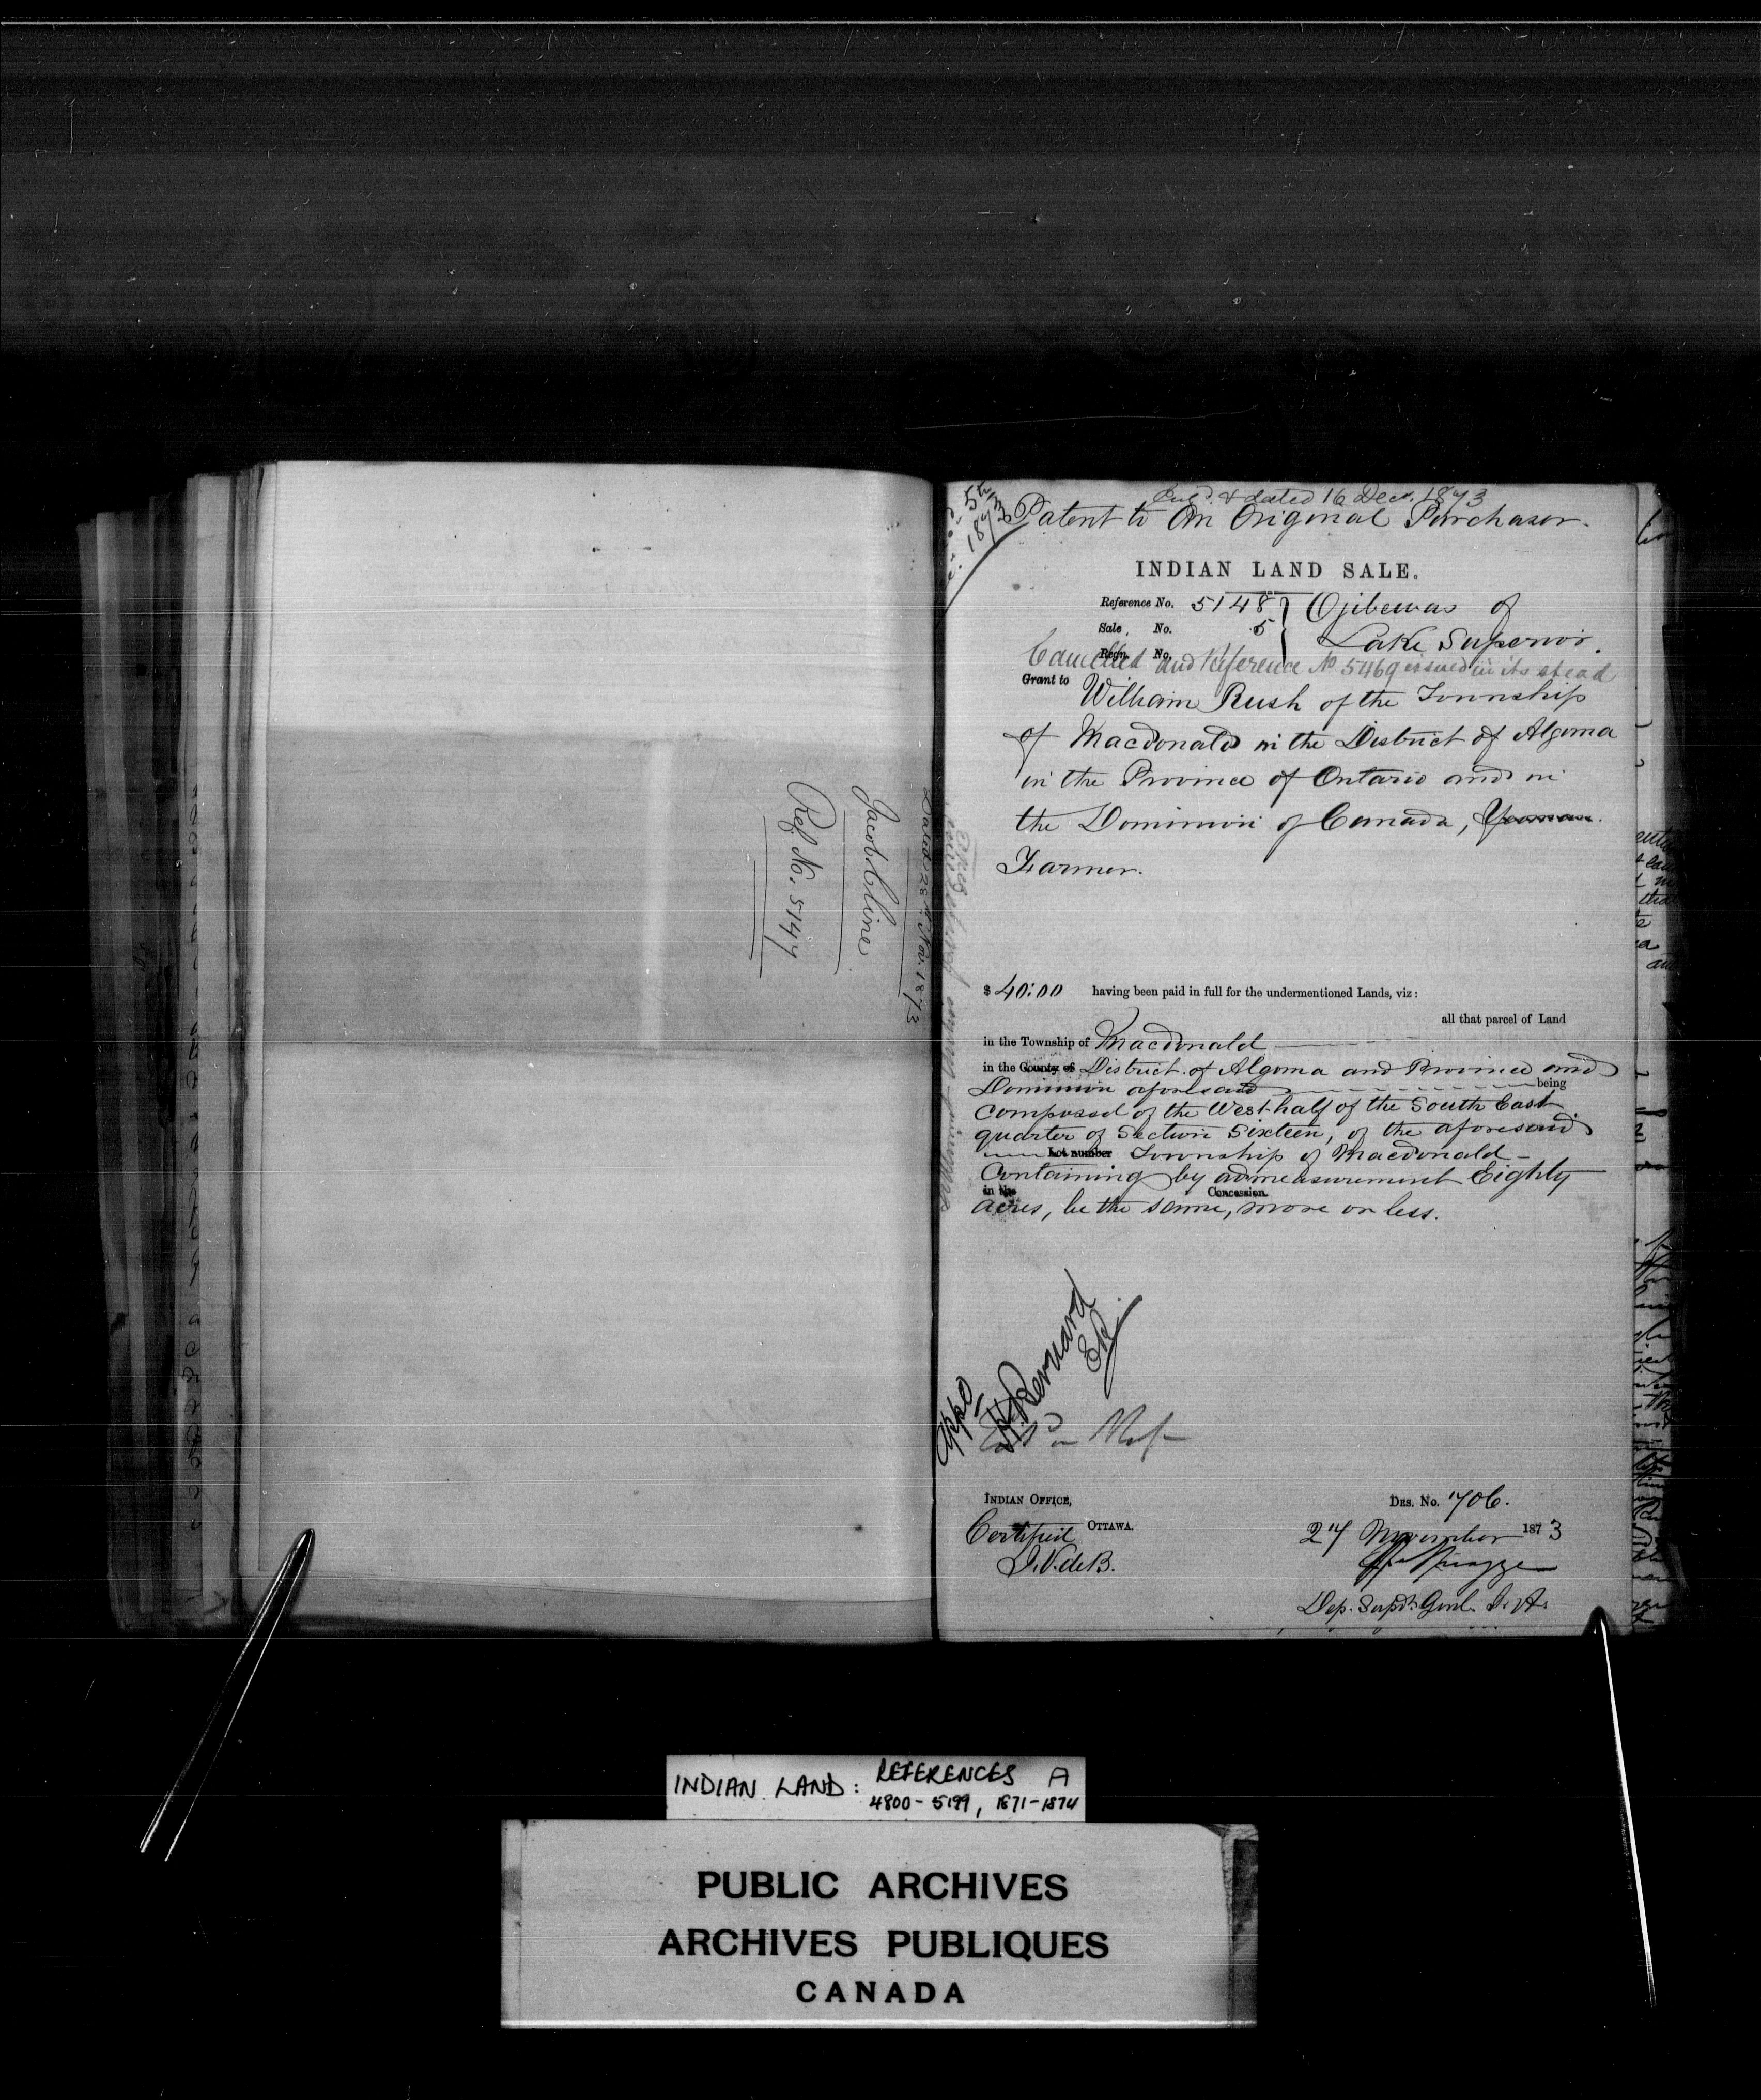 Dated 28th Nov. 1873
Jacob Cline
Ref. No. 5147
5th
1873
Eng'd. & dated 16 Decr. 1873
Patent to An Original Purchaser.
INDIAN LAND SALE.
Reference No. 5148 } Ojibewas of
Sale, No. 5 } Lake Superior.
Regn. No.
Cancelled and Reference No 5469 issued in its stead
Grant to William Rush of the Township
of Macdonald in the District of Algoma
in the Province of Ontario and in
the Dominion of Canada, Yeoman.
Farmer.
$ 40:00 having been paid in full for the undermentioned Lands, viz:
all that parcel of Land
in the Township of Macdonald
in the County of District of Algoma and Province and
Dominion aforesaid being
composed of the West half of the South East
quarter of Section Sixteen, of the aforesaid
Lot number Township of Macdonald -
Containing by admeasurement Eighty
in the Concession
acres, be the same, more or less.
Appd
H. Bernard
INDIAN OFFICE,
OTTAWA.
Certified
J.V. de B.
DES. No. 706.
27 November 1873
Dep. Supdt. Genl. I. A.
INDIAN LAND: REFERENCES A
4800-5199, 1871-1874
PUBLIC ARCHIVES
ARCHIVES PUBLIQUES
CANADA